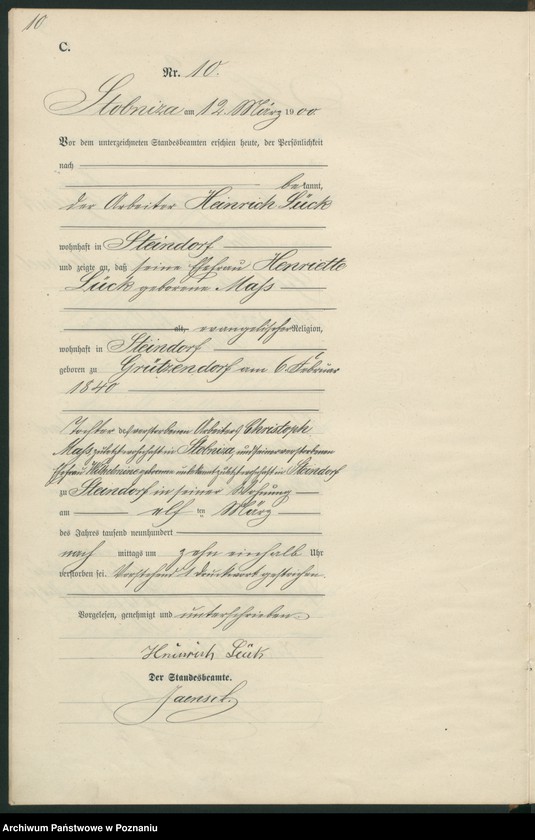 10
C.
Nr. 10.
Stobniza am 12. März 1900.
Vor dem unterzeichneten Standesbeamten erschien heute, der Persönlichkeit
nach
bekannt,
der Arbeiter Heinrich Lück
wohnhaft in Steindorf
und zeigte an, daß seine Ehefrau Henriette
Lück geborene Maß
alt, evangelischer Religion,
wohnhaft in Steindorf
geboren zu Grützendorf am 6. Februar
1840
Tochter des verstorbenen Arbeiters Christoph
Maß zuletzt wohnhaft in Stobniza, und seiner verstorbenen
Ehefrau Wilhelmine geborene unbekannt zuletzt wohnhaft in Steindorf
zu Steindorf in seiner Wohnung
am elf ten März
des Jahres tausend neunhundert
nach mittags um zehn einhalb Uhr
verstorben sei. Vorstehend 1 Druckwort gestrichen.
Vorgelesen, genehmigt und unterschrieben
Heinrich Lück
Der Standesbeamte.
Jaensch.
Archiwum Państwowe w Poznaniu